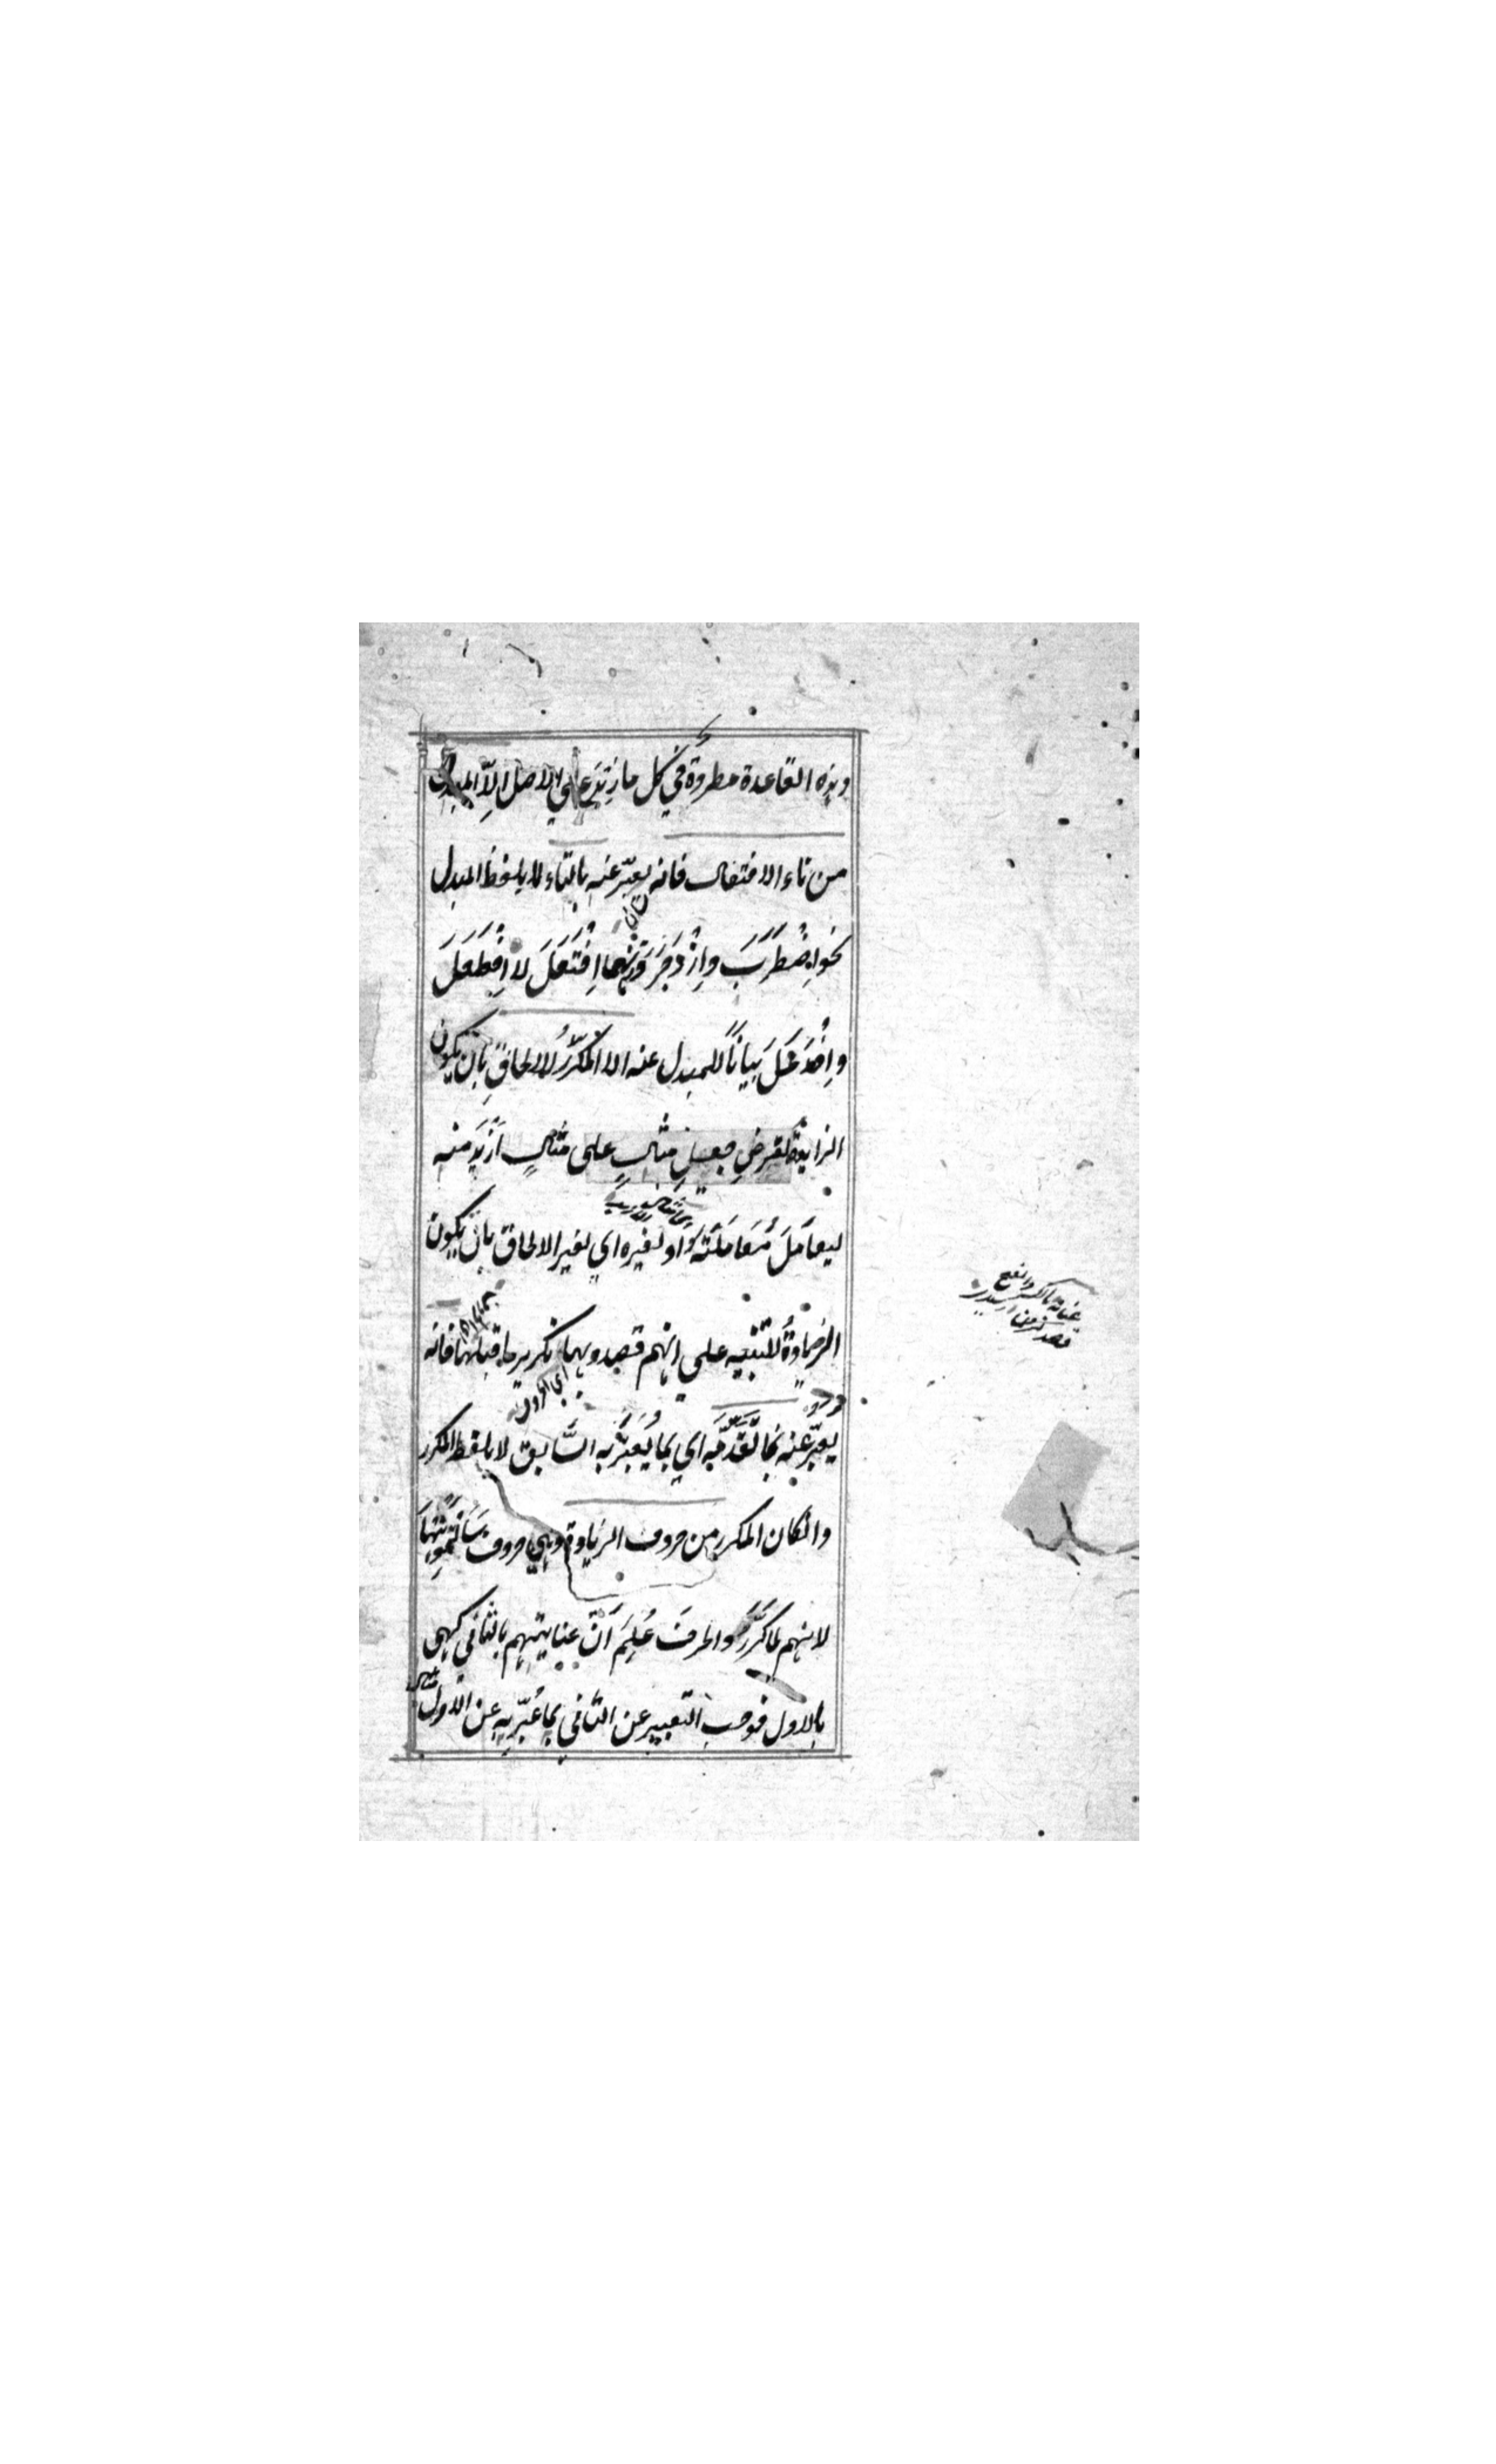 وهذه القاعدة مطردة في كل ما زيد على الاصل الّا المبدل
من تاء الافتعال فانه يعبّر عنه بالتاء لا بلفظ المبدل
نحو اِضْطَرَبَ واِزْدَجَرَ وزنهما اِفْتَعَلَ لا اِفْطَعَلَ
واِفْدَعَلَ بَيَانًا للمبدل عنه الا المكرّرُ للالحاقِ بان يكون
الزايدة لغرضِ جعلِ مثالٍ على مثالٍ اَزْيَدَ منه
ليعامَلَ مُعَامَلَتَهُ او لغيره اي لغير الالحاق بان يكون
الزيادةُ للتنبيه على انهم قصدوا بها تكرير ما قبلها فانه
اي الحرف
يعبّر عنه بما تَقَدَّمَه اي بما يُعَبَّرُ به السَّابق لا بلفظ المكرر
وان كان المكرر من حروف الزيادة وهي حروف سَأَلْتُمُونِيهَا
لانهم لما كَرَّرُوا الحرفَ عُلِمَ اَنَّ عنايتهم بالثاني كهي
بالاول فوجب التعبير عن الثاني بما عُبّر به عن الاول
عناية بالكسر والفتح